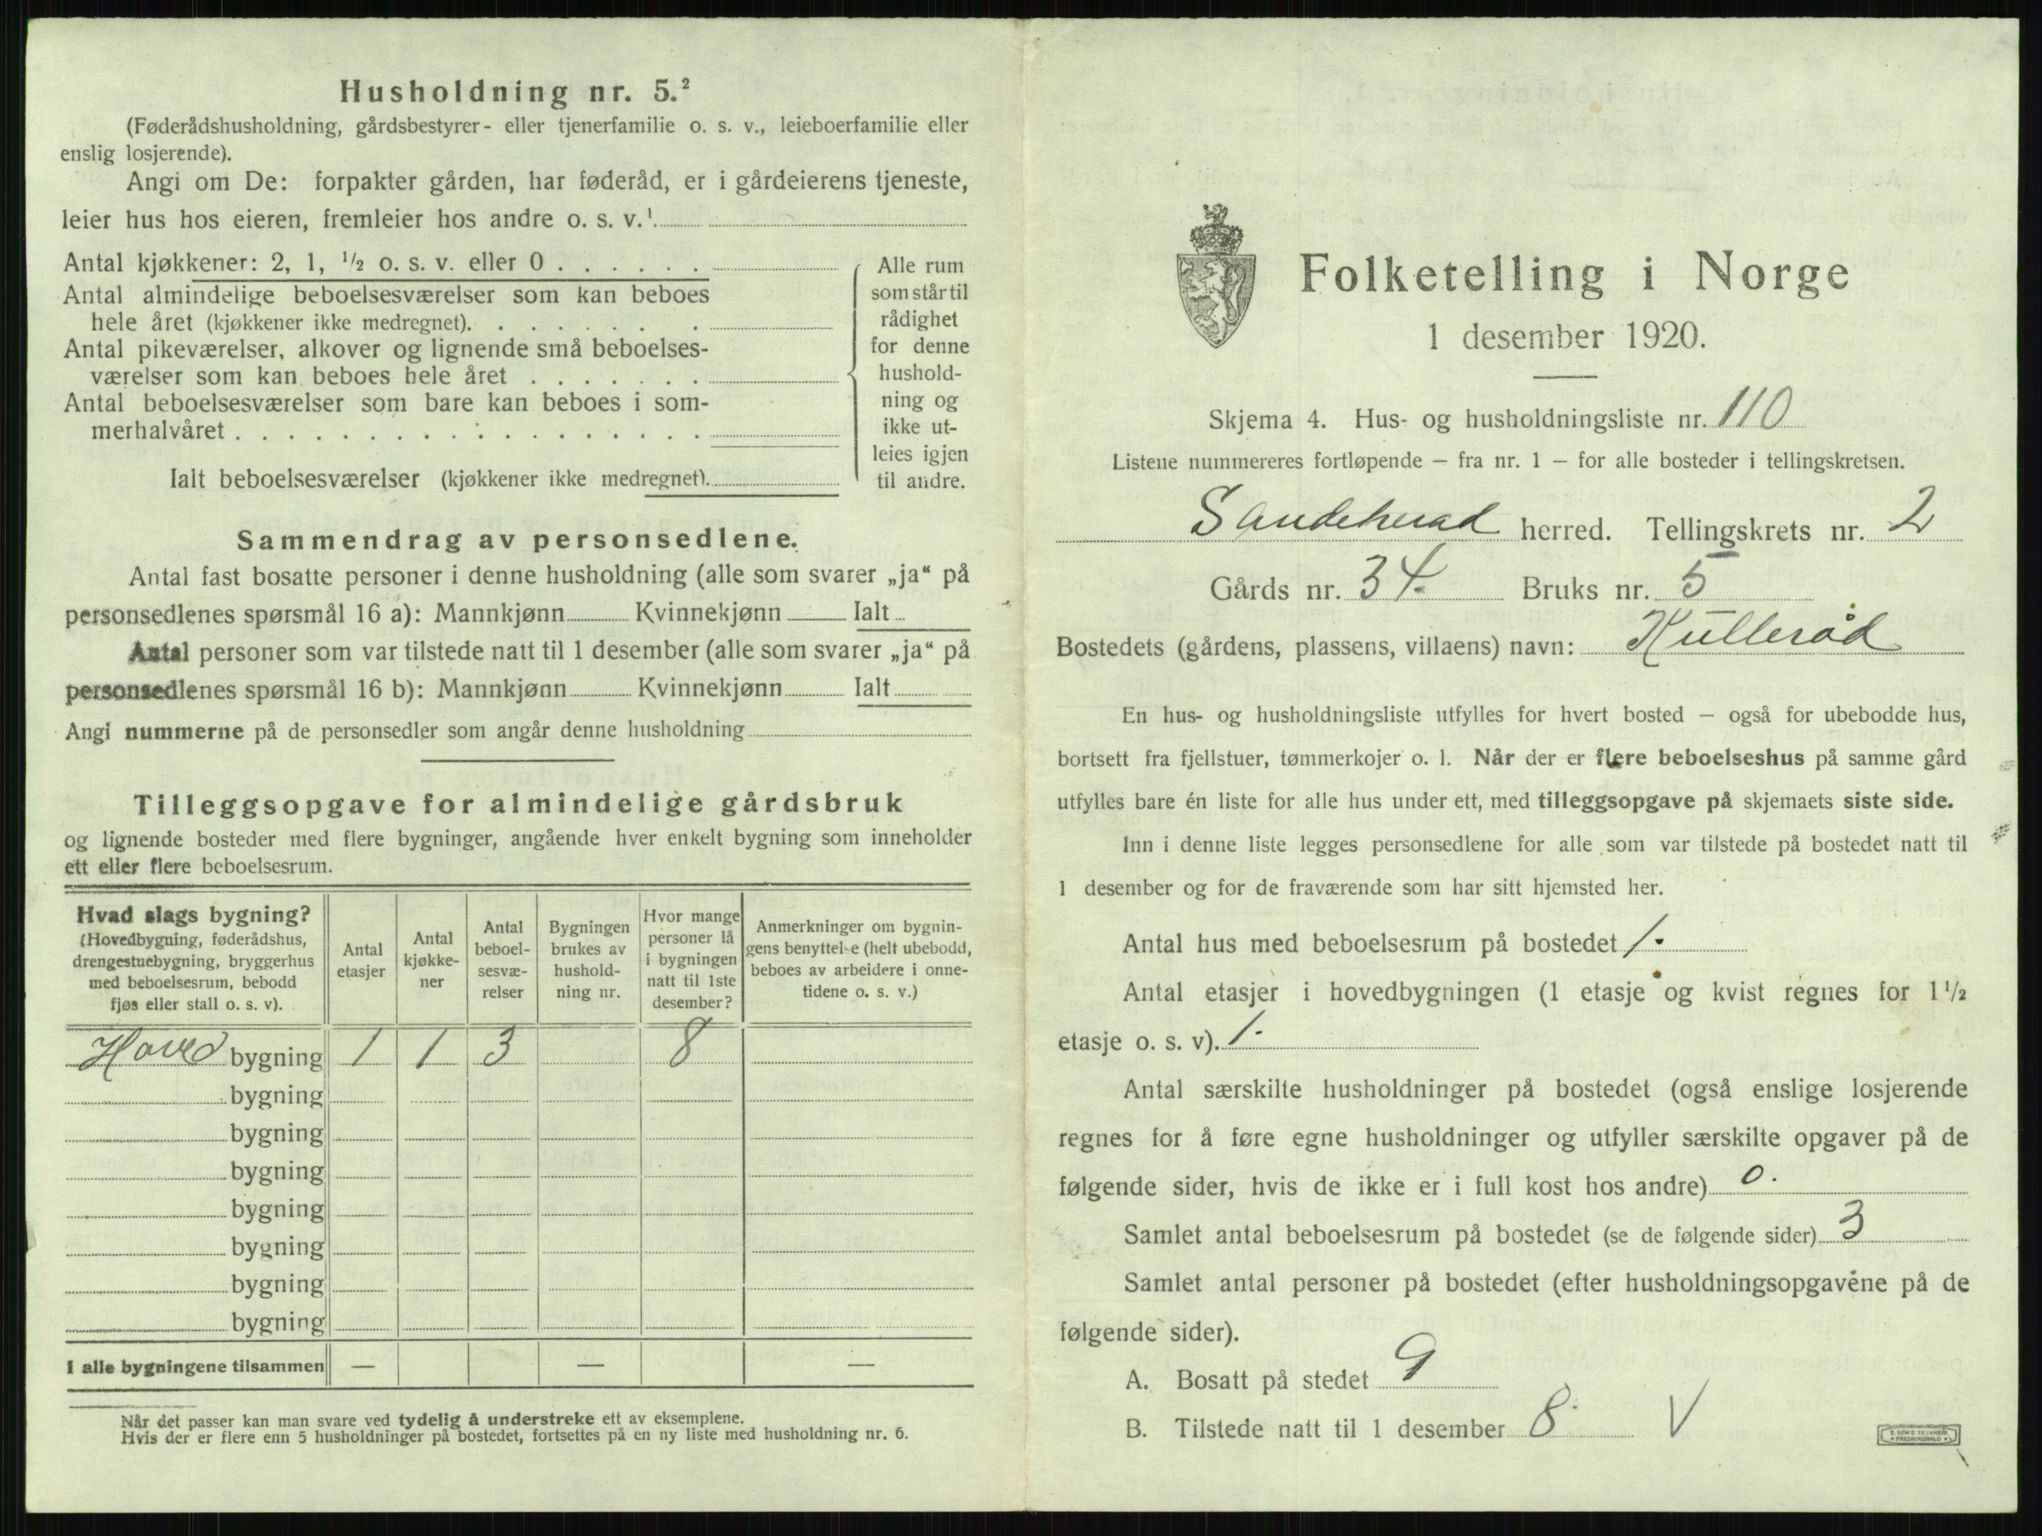 Husholdning nr. 5.²
(Føderådshusholdning, gårdsbestyrer- eller tjenerfamilie o. s. v., leieboerfamilie eller
enslig losjerende).
Angi om De: forpakter gården, har føderåd, er i gårdeierens tjeneste,
leier hus hos eieren, fremleier hos andre o. s. v.¹
Antal kjøkkener: 2, 1, ½ o. s. v. eller 0 . . . . . .
Antal almindelige beboelsesværelser som kan beboes
hele året (kjøkkener ikke medregnet). . . . . . . .
Antal pikeværelser, alkover og lignende små beboelses-
værelser som kan beboes hele året . . . . . . .
Antal beboelsesværelser som bare kan beboes i som-
merhalvåret . . . . . . . . . . . . . . . . . .
Ialt beboelsesværelser (kjøkkener ikke medregnet).
Alle rum
som står til
rådighet
for denne
hushold-
ning og
ikke ut-
leies igjen
til andre.
Sammendrag av personsedlene.
Antal fast bosatte personer i denne husholdning (alle som svarer „ja“ på
personsedlenes spørsmål 16 a): Mannkjønn Kvinnekjønn Ialt
Antal personer som var tilstede natt til 1 desember (alle som svarer „ja“ på
personsedlenes spørsmål 16 b): Mannkjønn Kvinnekjønn Ialt
Angi nummerne på de personsedler som angår denne husholdning
Tilleggsopgave for almindelige gårdsbruk
og lignende bosteder med flere bygninger, angående hver enkelt bygning som inneholder
ett eller flere beboelsesrum.
Hvad slags bygning?
(Hovedbygning, føderådshus,
drengestuebygning, bryggerhus
med beboelsesrum, bebodd
fjøs eller stall o. s. v).
Antal
etasjer
Antal
kjøkke-
ner
Antal
beboel-
sesvæ-
relser
Bygningen
brukes av
hushold-
ning nr.
Hvor mange
personer lå
i bygningen
natt til 1ste
desember?
Anmerkninger om bygnin-
gens benyttelse (helt ubebodd,
beboes av arbeidere i onne-
tidene o. s. v.)
Hoved bygning 1 1 3 8
bygning
bygning
bygning
bygning
bygning
bygning
bygning
I alle bygningene tilsammen — — —
Når det passer kan man svare ved tydelig å understreke ett av eksemplene.
Hvis der er flere enn 5 husholdninger på bostedet, fortsettes på en ny liste med husholdning nr. 6.
Folketelling i Norge
1 desember 1920.
Skjema 4. Hus- og husholdningsliste nr. 110
Listene nummereres fortløpende — fra nr. 1 — for alle bosteder i tellingskretsen.
Sandeherad herred. Tellingskrets nr. 2
Gårds nr. 34. Bruks nr. 5
Bostedets (gårdens, plassens, villaens) navn: Kullerød
En hus- og husholdningsliste utfylles for hvert bosted — også for ubebodde hus,
bortsett fra fjellstuer, tømmerkojer o. l. Når der er flere beboelseshus på samme gård
utfylles bare én liste for alle hus under ett, med tilleggsopgave på skjemaets siste side.
Inn i denne liste legges personsedlene for alle som var tilstede på bostedet natt til
1 desember og for de fraværende som har sitt hjemsted her.
Antal hus med beboelsesrum på bostedet 1.
Antal etasjer i hovedbygningen (1 etasje og kvist regnes for 1½
etasje o. s. v). 1.
Antal særskilte husholdninger på bostedet (også enslige losjerende
regnes for å føre egne husholdninger og utfyller særskilte opgaver på de
følgende sider, hvis de ikke er i full kost hos andre) 0.
Samlet antal beboelsesrum på bostedet (se de følgende sider) 3
Samlet antal personer på bostedet (efter husholdningsopgavene på de
følgende sider).
A. Bosatt på stedet 9
B. Tilstede natt til 1 desember 8. V